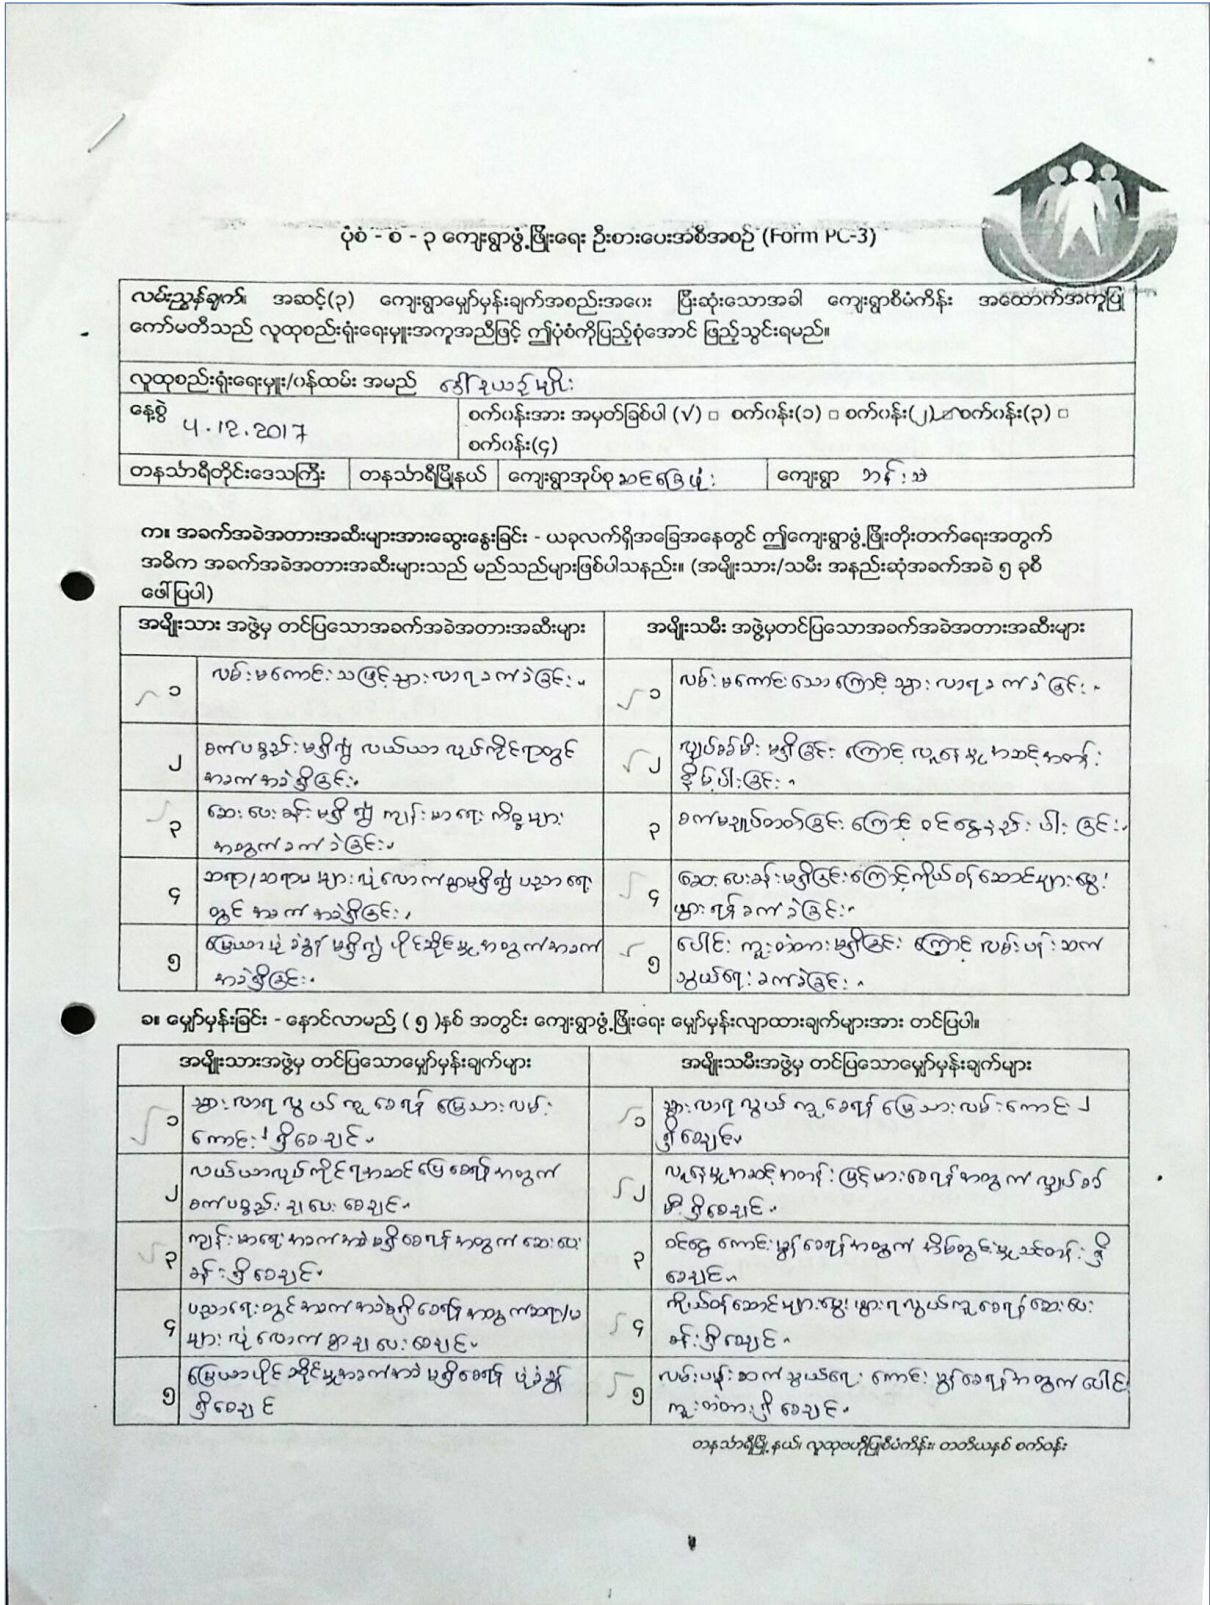 ပုံစံ - စ - ၃ ကျေးရွာဖွံ့ဖြိုးရေး ဦးစားပေးအစီအစဉ် (Form PC-3)
လမ်းညွှန်ချက်။ အဆင့်(၃) ကျေးရွာမျှော်မှန်းချက်အစည်းအဝေး ပြီးဆုံးသောအခါ ကျေးရွာစီမံကိန်း အထောက်အကူပြု
ကော်မတီသည် လူထုစည်းရုံးရေးမှူးအကူအညီဖြင့် ဤပုံစံကိုပြည့်စုံအောင် ဖြည့်သွင်းရမည်။
လူထုစည်းရုံးရေးမှူး/ဝန်ထမ်း အမည် ဒေါ်နုယဉ်မျိုး
နေ့စွဲ 4.12.2017
စက်ဝန်းအား အမှတ်ခြစ်ပါ (√) □ စက်ဝန်း(၁) □ စက်ဝန်း(၂) စက်ဝန်း(၃) □
စက်ဝန်း(၄)
တနင်္သာရီတိုင်းဒေသကြီး တနင်္သာရီမြို့နယ် ကျေးရွာအုပ်စု ဆင်ဖြူ ကျေးရွာ ဘန်းသဲ
က။ အခက်အခဲအတားအဆီးများအားဆွေးနွေးခြင်း - ယခုလက်ရှိအခြေအနေတွင် ဤကျေးရွာဖွံ့ဖြိုးတိုးတက်ရေးအတွက်
အဓိက အခက်အခဲအတားအဆီးများသည် မည်သည်များဖြစ်ပါသနည်း။ (အမျိုးသား/သမီး အနည်းဆုံးအခက်အခဲ ၅ ခုစီ
ဖေါ်ပြပါ)
အမျိုးသား အဖွဲ့မှ တင်ပြသောအခက်အခဲအတားအဆီးများ
အမျိုးသမီး အဖွဲ့မှတင်ပြသောအခက်အခဲအတားအဆီးများ
၁ လမ်းမကောင်းသဖြင့်သွားလာရခက်ခဲခြင်း။
၁ လမ်းမကောင်းသောကြောင့် သွားလာရခက်ခဲခြင်း။
၂ စက်ပစ္စည်းမရှိ၍ လယ်ယာလုပ်ကိုင်ရာတွင်
အခက်အခဲရှိခြင်း။
၂ လျှပ်စစ်မီး မရှိခြင်းကြောင့် လူနေမှုအဆင့်အတန်း
နိမ့်ပါးခြင်း။
၃ ဆေးပေးခန်းမရှိ၍ ကျန်းမာရေးကိစ္စများ
အတွက်ခက်ခဲခြင်း။
၃ စက်မချုပ်တတ်ခြင်းကြောင့် ဝင်ငွေနည်းပါးခြင်း။
၄ ဆရာ/ဆရာမများ လုံလောက်စွာမရှိ၍ ပညာရေး
တွင် အခက်အခဲရှိခြင်း။
၄ ဆေးပေးခန်းမရှိခြင်းကြောင့်ကိုယ်ဝန်ဆောင်များမွေး
ဖွားရန်ခက်ခဲခြင်း။
၅ မြေယာပုံစံခွန်မရှိ၍ ပိုင်ဆိုင်မှုအတွက်အခက်
အခဲရှိခြင်း။
၅ ပေါင်းကူးတံတားမရှိခြင်းကြောင့် လမ်းပန်းဆက်
သွယ်ရေးခက်ခဲခြင်း။
ခ။ မျှော်မှန်းခြင်း - နောင်လာမည် ( ၅ )နှစ် အတွင်း ကျေးရွာဖွံ့ဖြိုးရေး မျှော်မှန်းလျာထားချက်များအား တင်ပြပါ။
အမျိုးသားအဖွဲ့မှ တင်ပြသောမျှော်မှန်းချက်များ
အမျိုးသမီးအဖွဲ့မှ တင်ပြသောမျှော်မှန်းချက်များ
၁ သွားလာရလွယ်ကူစေရန် မြေသားလမ်း
ကောင်း၂ ရှိစေချင်။
၁ သွားလာရလွယ်ကူစေရန် မြေသားလမ်းကောင်း၂
ရှိစေချင်။
၂ လယ်ယာလုပ်ကိုင်ရအဆင်ပြေစေရန်အတွက်
စက်ပစ္စည်းချပေးစေချင်။
၂ လူနေမှုအဆင့်အတန်းမြင့်မားစေရန်အတွက် လျှပ်စစ်
မီးရှိစေချင်။
၃ ကျန်းမာရေးအခက်အခဲမရှိစေရန်အတွက် ဆေးပေး
ခန်းရှိစေချင်။
၃ ဝင်ငွေကောင်းမွန်စေရန်အတွက် အိမ်တွင်းမှုသင်တန်းရှိ
စေချင်။
၄ ပညာရေးတွင်အခက်အခဲမရှိစေရန်အတွက်ဆရာ/မ
များလုံလောက်စွာချပေးစေချင်။
၄ ကိုယ်ဝန်ဆောင်များမွေးဖွားရလွယ်ကူစေရန်ဆေးပေး
ခန်းရှိစေချင်။
၅ မြေယာပိုင်ဆိုင်မှုအခက်အခဲမရှိစေရန် ပုံစံခွန်
ရှိစေချင်
၅ လမ်းပန်းဆက်သွယ်ရေးကောင်းမွန်စေရန်အတွက်ပေါင်း
ကူးတံတားရှိစေချင်။
တနင်္သာရီမြို့နယ်၊ လူထုဗဟိုပြုစီမံကိန်း၊ တတိယနှစ် စက်ဝန်း